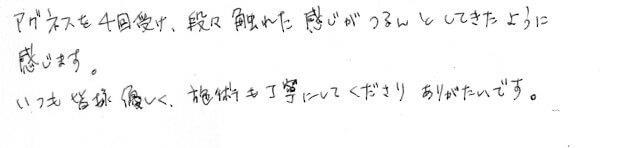 アグネスを4回受け、段々触れた感じがつるんとしてきたように
感じます。
いつも皆様優しく、施術も丁寧にしてくださりありがたいです。